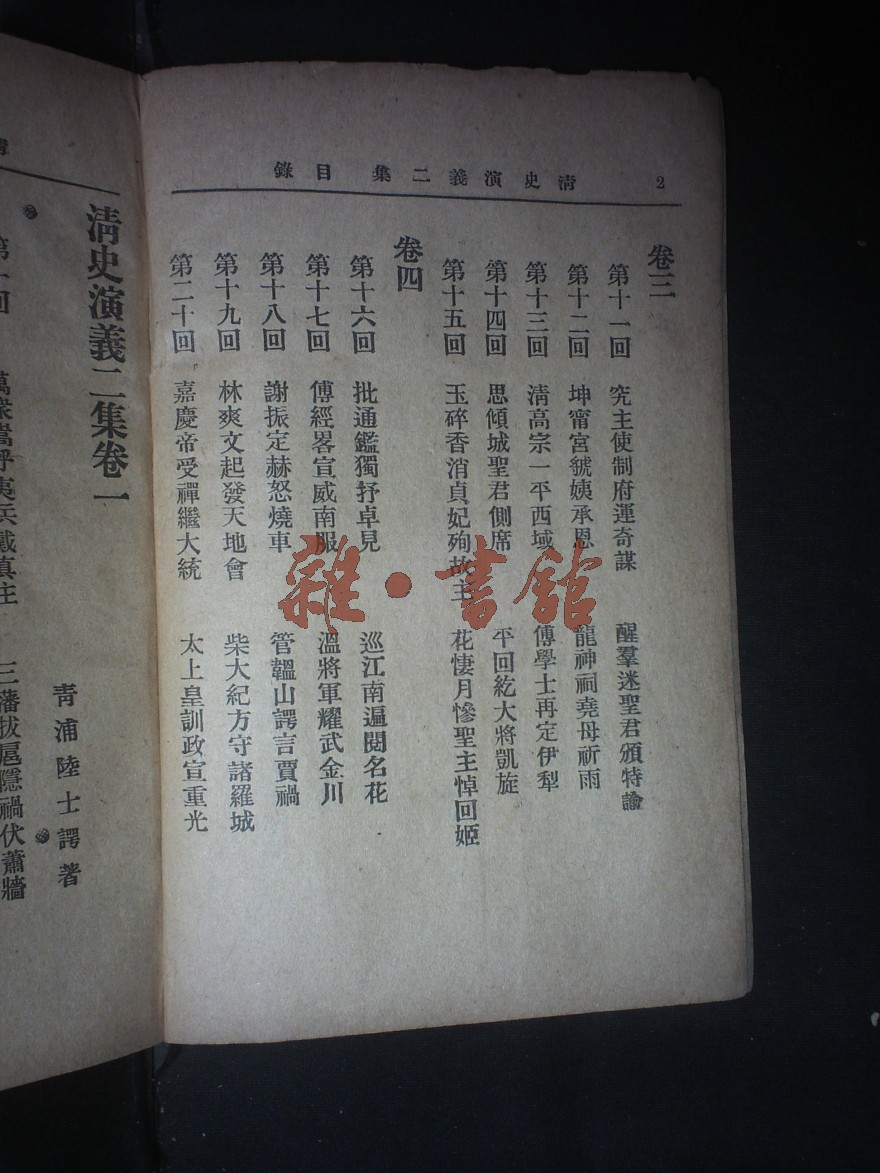 清史演義二集 目錄 2
卷三
第十一回 究主使制府運奇謀 醒羣迷聖君頒特諭
第十二回 坤甯宮虢姨承恩 龍神祠堯母祈雨
第十三回 清高宗一平西域 傅學士再定伊犁
第十四回 思傾城聖君側席 平回紇大將凱旋
第十五回 玉碎香消貞妃殉故主 花悽月慘聖主悼回姬
卷四
第十六回 批通鑑獨抒卓見 巡江南遍閱名花
第十七回 傅經畧宣威南服 溫將軍耀武金川
第十八回 謝振定赫怒燒車 管韞山諤言賈禍
第十九回 林爽文起發天地會 柴大紀方守諸羅城
第二十回 嘉慶帝受禪繼大統 太上皇訓政宣重光
清史演義二集卷一
青浦陸士諤著
第一回 萬衆嵩呼夷兵戴真主 三藩拔扈隱禍伏蕭牆
雜·書館